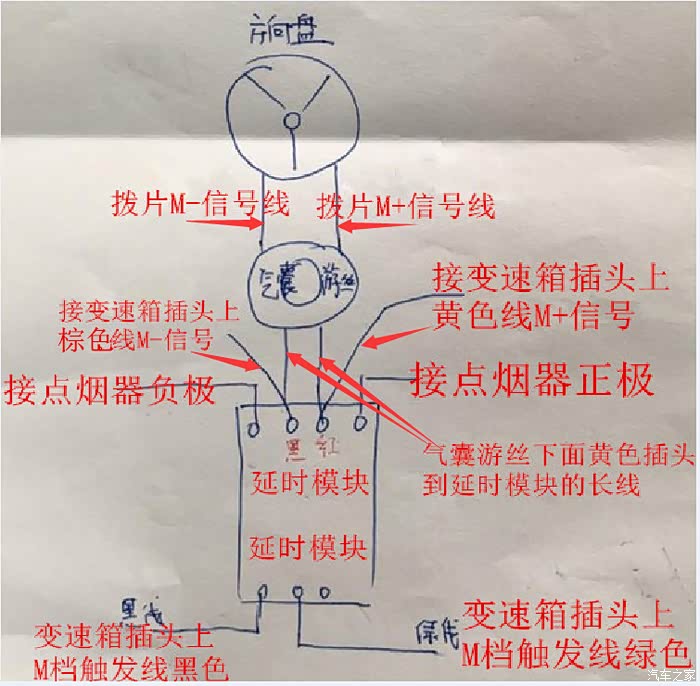 方向盘
拨片M-信号线
拨片M+信号线
气囊游丝
接变速箱插头上
棕色线M-信号
接变速箱插头上
黄色线M+信号
接点烟器负极
接点烟器正极
黑 红
气囊游丝下面黄色插头
到延时模块的长线
延时模块
延时模块
黑线
变速箱插头上
M档触发线黑色
绿线
变速箱插头上
M档触发线绿色
汽车之家